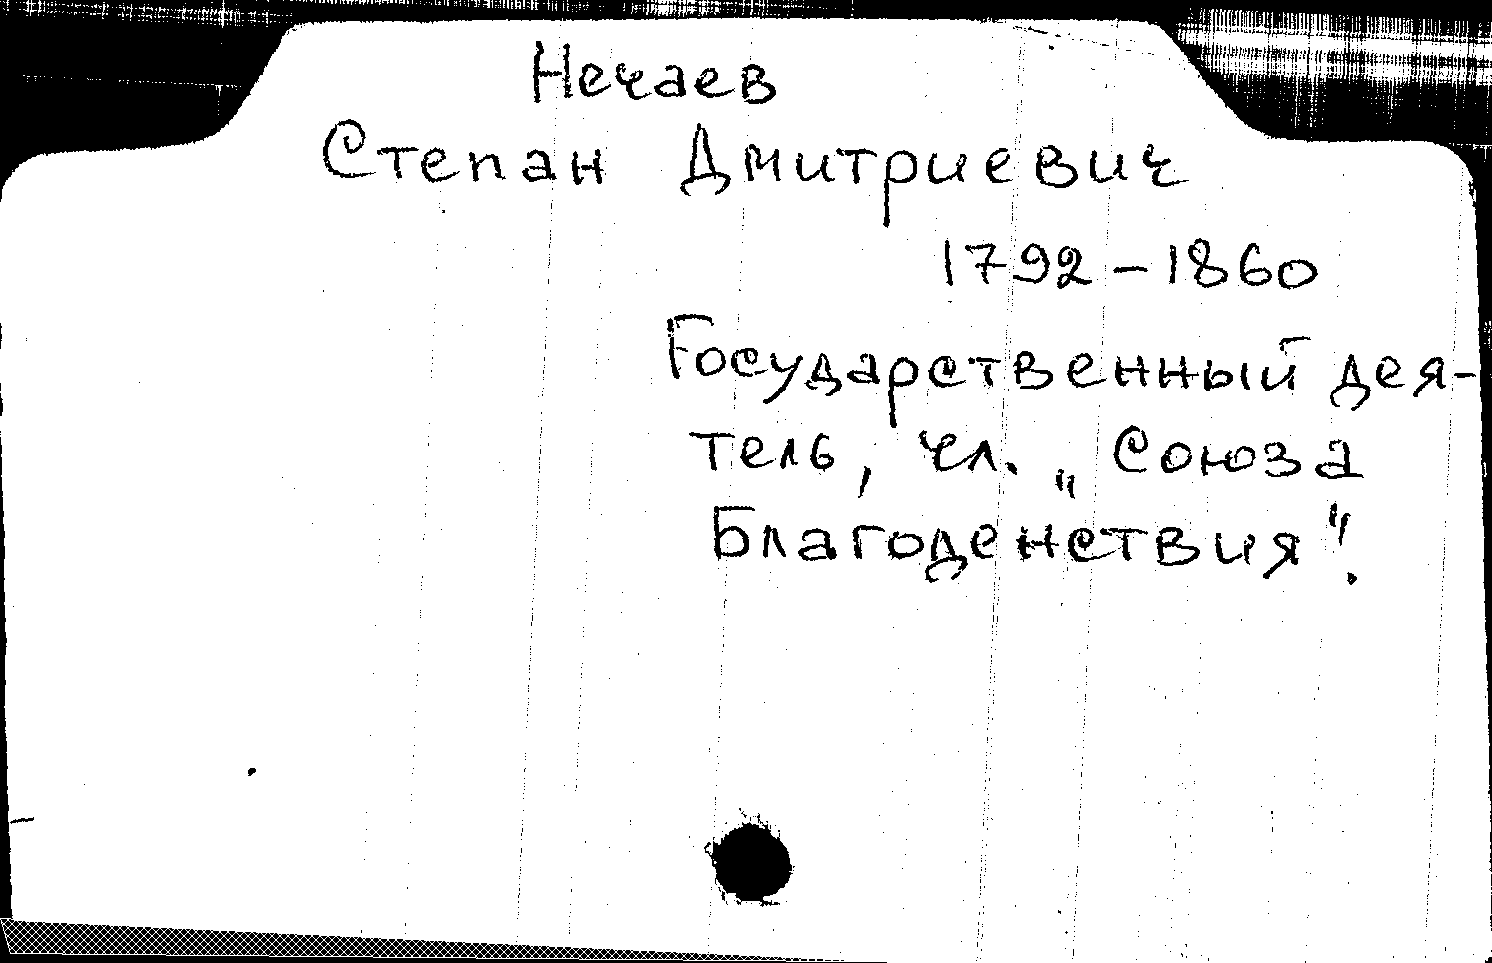 Нечаев
Степан Дмитриевич
1792-1860
Государственный дея-
тель, чл. „Союза
Благоденствия".